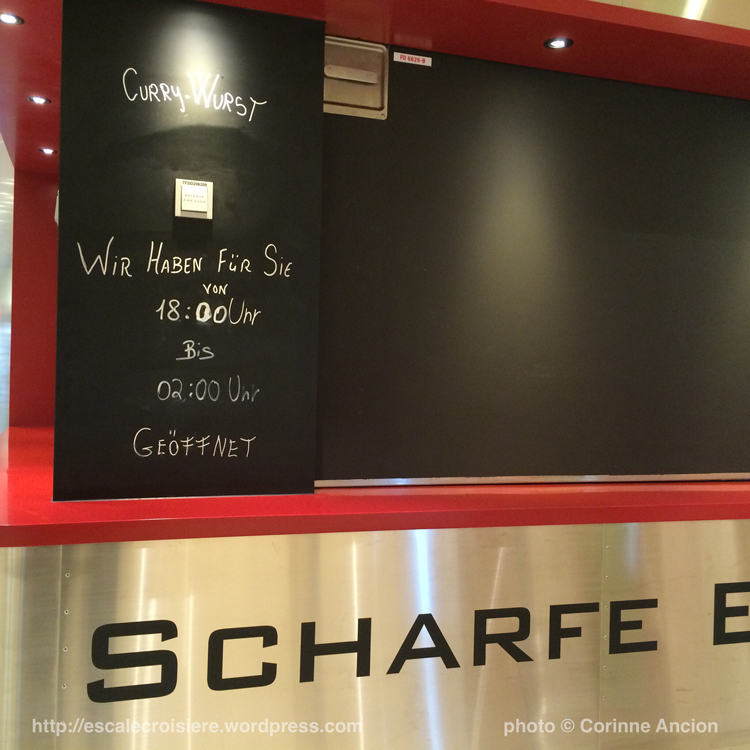 CURRY-WURST
FD 6626-B
WIR HABEN FÜR SIE
VON
18:00 Uhr
Bis
02:00 Uhr
GEÖFFNET
SCHARFE E
http://escalecroisiere.wordpress.com
photo © Corinne Ancion